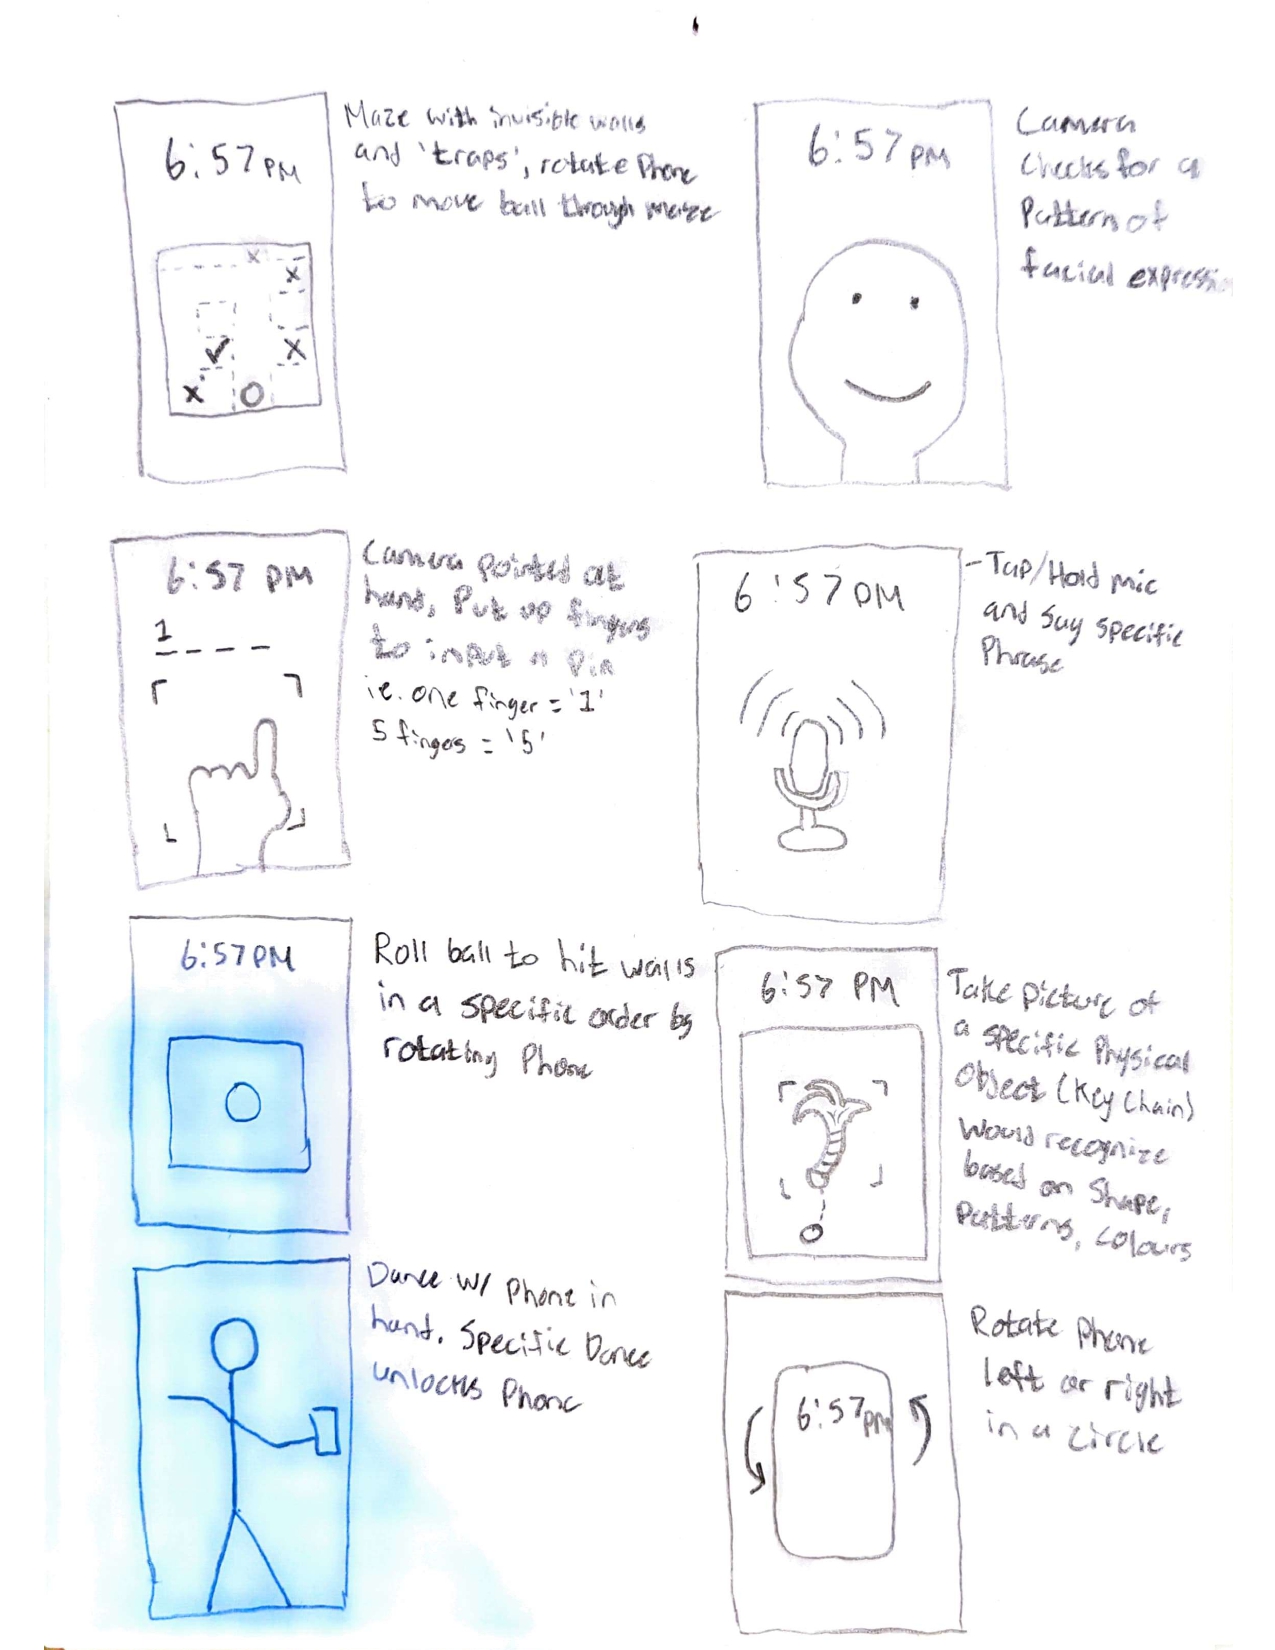 6:57 PM
Maze with invisible walls
and 'traps', rotate Phone
to move ball through maze
x
x
x
x
6:57 PM
Camera
Checks for a
Pattern of
facial expressio
6:57 PM
1
Camera pointed at
hand, Put up fingers
to input a pin
ie. one finger = '1'
5 fingers = '5'
6:57 PM
-Tap/Hold mic
and say specific
Phrase
6:57 PM
Roll ball to hit walls
in a specific order by
rotating Phone
6:57 PM
Take picture of
a specific Physical
Object (Key Chain)
Would recognize
based on Shape,
Patterns, colours
Dance w/ Phone in
hand. Specific Dance
unlocks Phone
6:57 PM
Rotate phone
left or right
in a circle